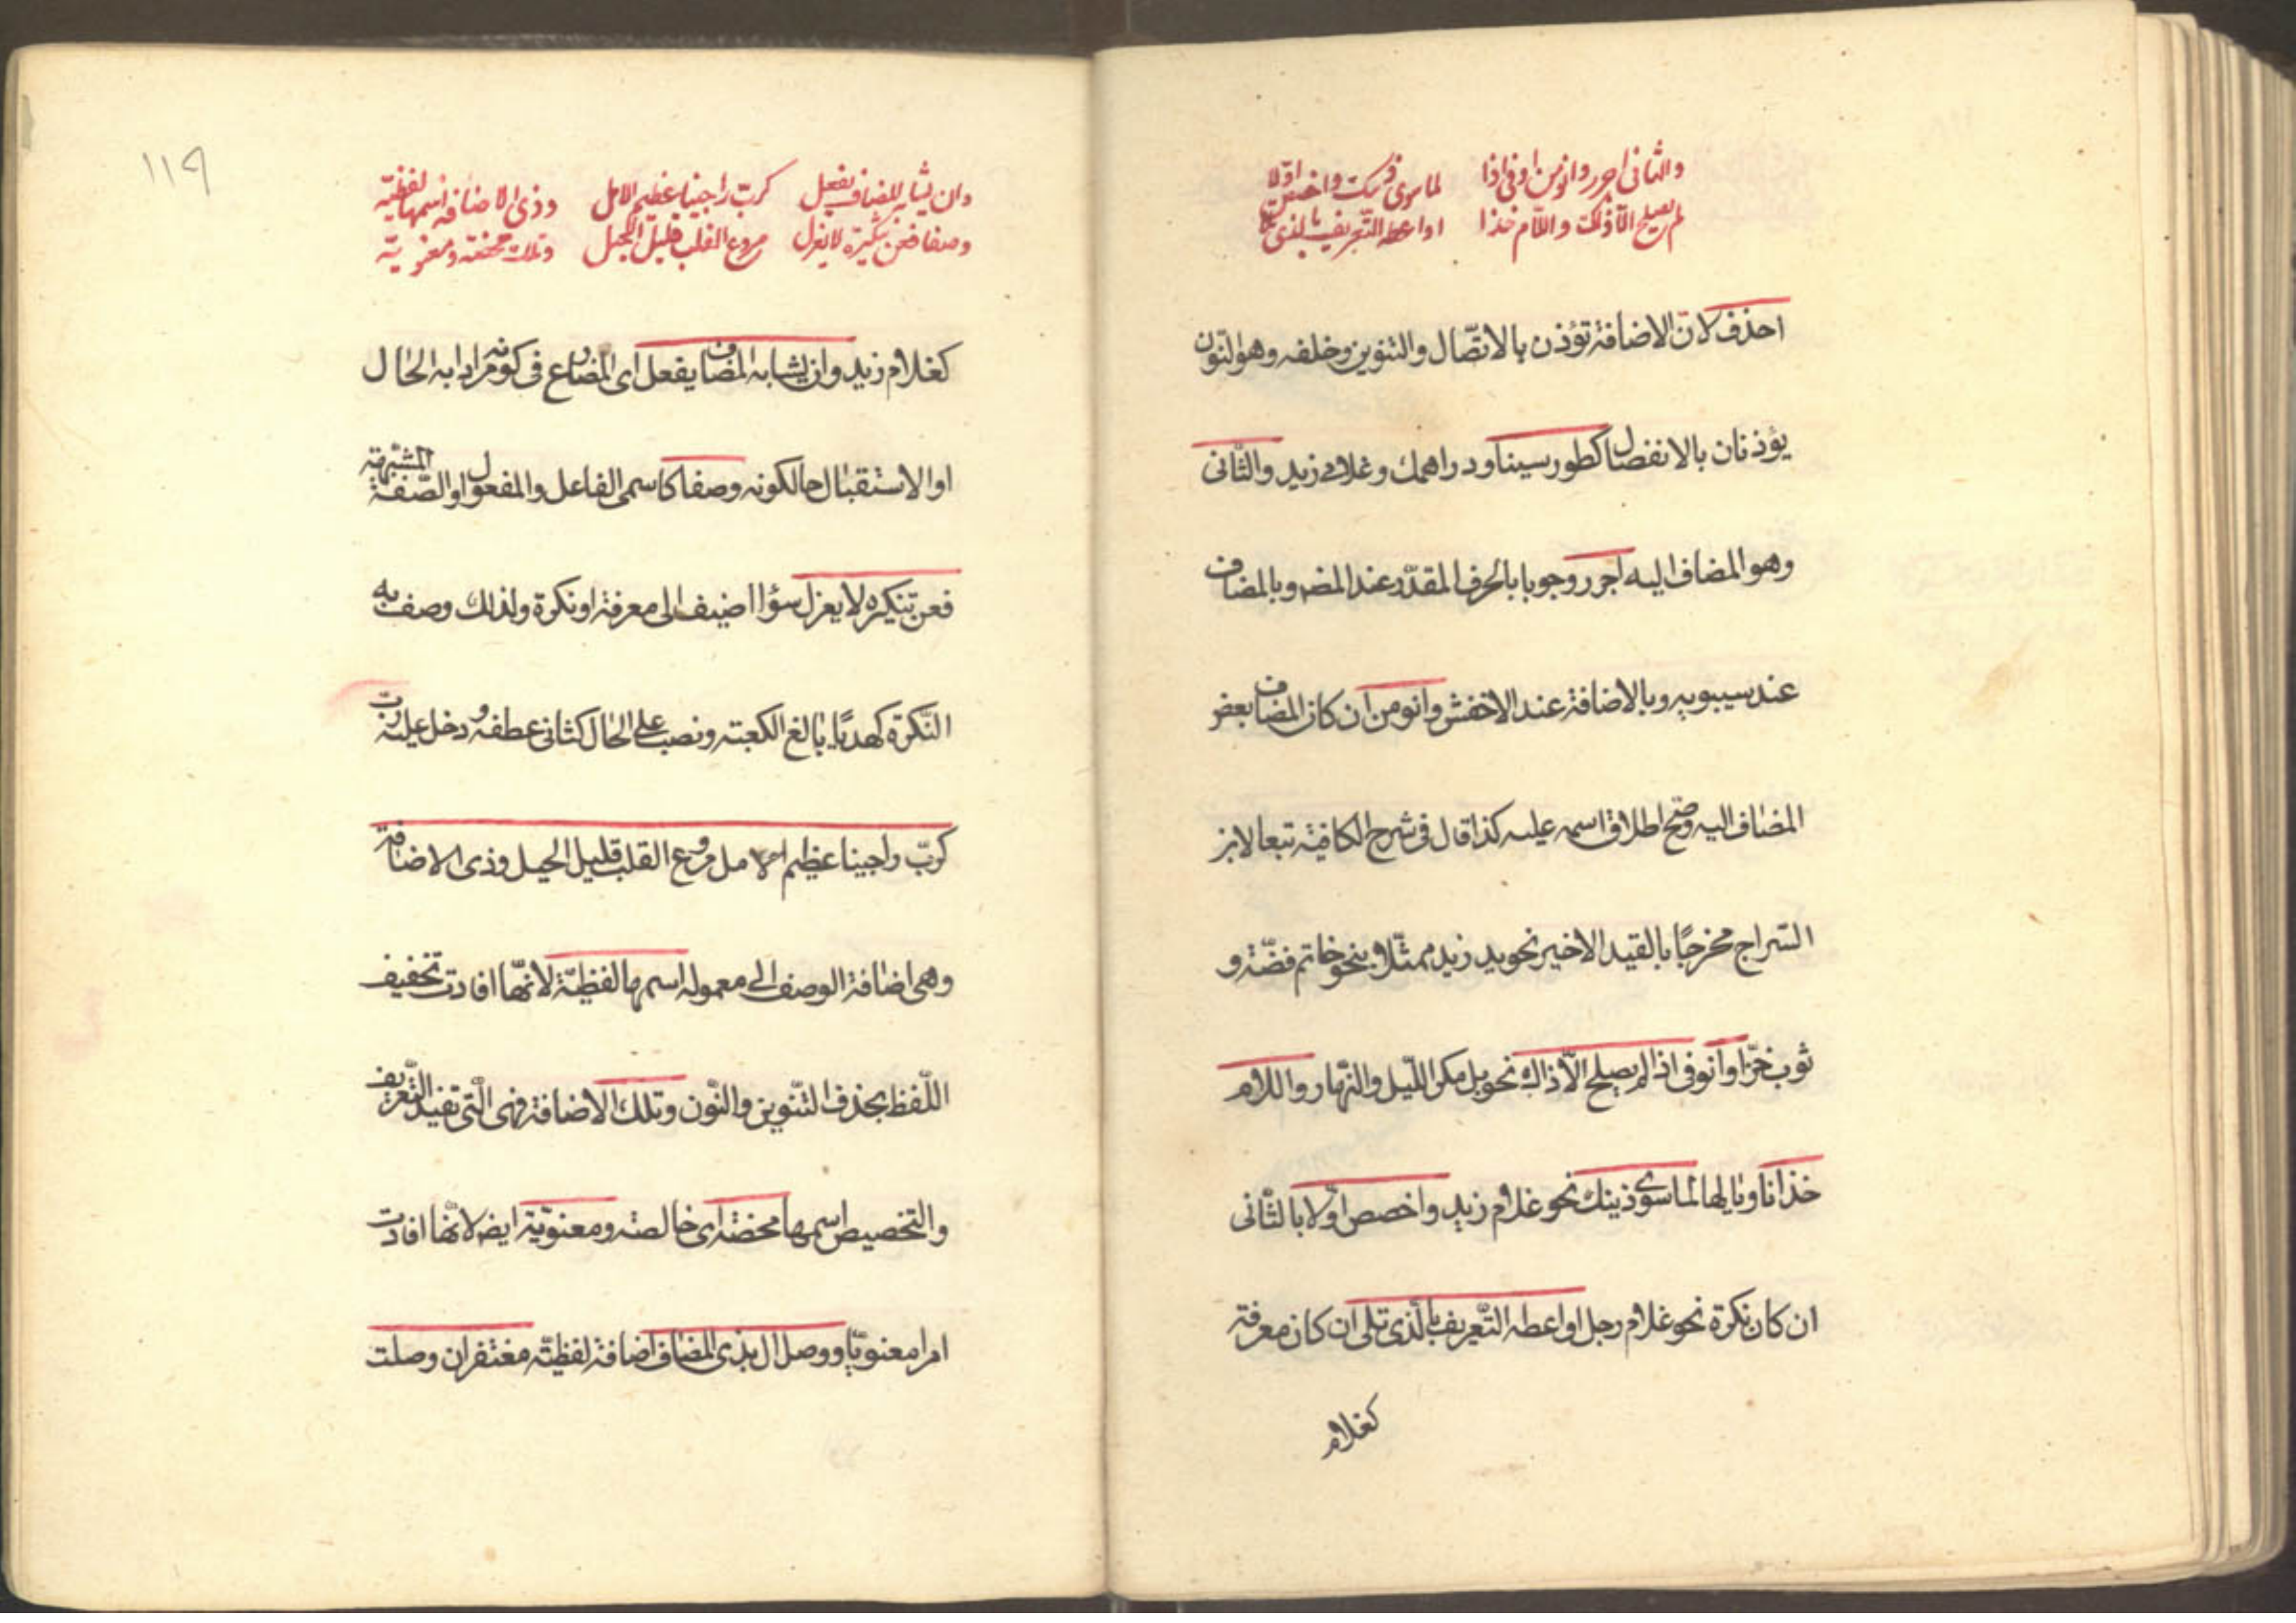 والثانى اجرر وانو من او فى اذا لما سوى ذينك واخصص اوّلا
لم يصلح الّا ذلك واللام خذا او اعطه التّعريف بالذى تلا
احذف لانّ الاضافة تؤذن بالاتّصال والتنوين وخلفه وهو النون
يؤذنان بالانفصال كطور سينا ودراهمك وغلامى زيد والثّانى
وهو المضاف اليه اجرر وجوبا بالحرف المقدّر عند المضـ وبالمضاف
عند سيبويه وبالاضافة عند الاخفش وانو من ان كان المضاف بعض
المضاف اليه وصحّ اطلاق اسمه عليه كذا قال فى شرح الكافية تبعا لابن
السّراج مخرجًا بالقيد الاخير نحو يد زيد ممثّلا بنحو خاتم فضّة و
ثوب خزّ او انو فى اذا لم يصلح الّا ذاك نحو بل مكر اللّيل والنّهار واللام
خذ انا ويا لها لما سوى ذينك نحو غلام زيد واخصص اوّلا بالثّانى
ان كان نكرة نحو غلام رجل او اعطه التّعريف بالّذى تلى ان كان معرفة
كغلام
١١٩
وان يشابه المضاف يفعل كربّ راجينا عظيم الامل وذى الاضافة اسمها لفظيّة
وصفا فعن تنكيره لا يعزل مروع القلب قليل الحيل وتلك محضة ومعنويّة
كغلام زيد وان يشابه المضاف يفعل اى المضارع فى كونه مرادا به الحال
او الاستقبال حالكونه وصفا كاسمى الفاعل والمفعول او الصّفة المشبّهة
فعن تنكيره لا يعزل سؤا اضيف الى معرفة او نكرة ولذلك وصف به
النّكرة كهديًا بالغ الكعبة ونصب على الحال كثانى عطفه ودخل عليه ربّ
كربّ راجينا عظيم الامل مروع القلب قليل الحيل وذى الاضافة
وهى اضافة الوصف الى معموله اسمها لفظيّة لانّها افادت تخفيف
اللّفظ بحذف التّنوين والنّون وتلك الاضافة وهى الّتى تفيد التّعريف
والتخصيص اسمها محضة اى خالصة ومعنويّة ايضـ لانّها افادت
امرا معنويّا ووصل ال بذى المضاف اضافة لفظيّة مغتفر ان وصلت